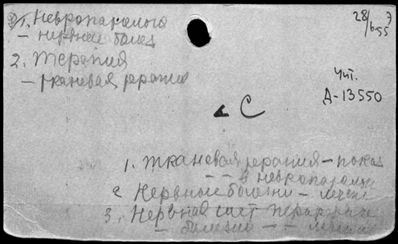 1. Невропатология
– нервные болез
2. Терапия
– тканевая терапия
28/6-55 7
Чит.
Д-13550
С
1. Тканевая терапия – показ
– – в невропатологии
2 Нервные болезни – лечен
3. Нервная сист
– болезни – –